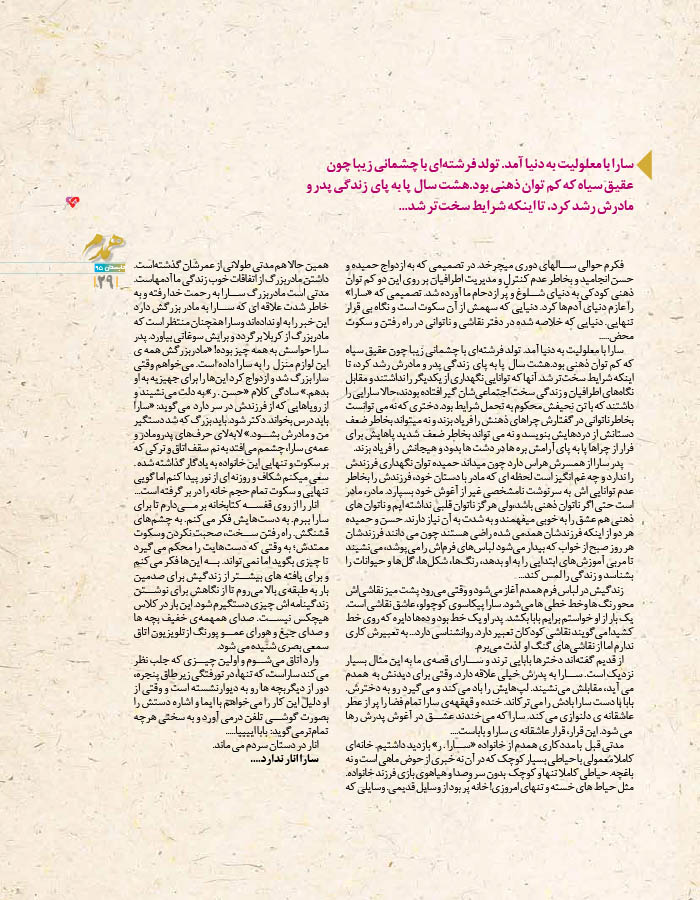 سارا با معلولیت به دنیا آمد. تولد فرشته‌ای با چشمانی زیبا چون
عقیق سیاه که کم توان ذهنی بود.هشت سال پا به پای زندگی پدر و
مادرش رشد کرد، تا اینکه شرایط سخت‌تر شد...
همدم
تابستان ۹۵
۲۹
فکرم حوالی سالهای دوری میچرخد. در تصمیمی که به ازدواج حمیده و
حسن انجامید و بخاطر عدم کنترل و مدیریت اطرافیان بر روی این دو کم توان
ذهنی کودکی به دنیای شلوغ و پر ازدحام ما آورده شد. تصمیمی که «سارا»
را عازم دنیای آدم‌ها کرد. دنیایی که سهمش از آن سکوت است و نگاه بی قرار
تنهایی. دنیایی که خلاصه شده در دفتر نقاشی و ناتوانی در راه رفتن و سکوت
محض....
سارا با معلولیت به دنیا آمد. تولد فرشته‌ای با چشمانی زیبا چون عقیق سیاه
که کم توان ذهنی بود.هشت سال پا به پای زندگی پدر و مادرش رشد کرد، تا
اینکه شرایط سخت‌تر شد. آنها که توانایی نگهداری از یکدیگر را نداشتند و مقابل
نگاه‌های اطرافیان و زندگی سخت اجتماعی‌شان گیر افتاده بودند،حالا سارایی را
داشتند که با تن نحیفش محکوم به تحمل شرایط بود. دختری که نه می توانست
بخاطر ناتوانی در گفتارش چراهای ذهنش را فریاد بزند و نه میتواند بخاطر ضعف
دستانش از دردهایش بنویسد و نه می تواند بخاطر ضعف شدید پاهایش برای
فرار از چراها پا به پای آرامش بره ها در دشت ها بدود و هیجانش را فریاد بزند.
پدر سارا از همسرش هراس دارد چون میداند حمیده توان نگهداری فرزندش
را ندارد و چه غم انگیز است لحظه ای که مادر با دستان خود، فرزندش را بخاطر
عدم توانایی اش به سرنوشت نامشخصی غیر از آغوش خود بسپارد. مادر، مادر
است حتی اگر ناتوان ذهنی باشد،ولی هرگز ناتوان قلبی نداشته ایم و ناتوان های
ذهنی هم عشق را به خوبی میفهمند و به شدت به آن نیاز دارند. حسن و حمیده
هر دو از اینکه فرزندشان همدمی شده راضی هستند چون می دانند فرزندشان
هر روز صبح از خواب که بیدار می‌شود لباس‌های فرم‌اش را می‌پوشد، می‌نشیند
تا مربی آموزش های ابتدایی را به او بدهد، رنگ‌ها، شکل‌ها، گل‌ها و حیوانات را
بشناسد و زندگی را لمس کند...
زندگیش در لباس فرم همدم آغاز می‌شود و وقتی می‌رود پشت میز نقاشی‌اش
محو رنگ ها و خط خطی ها می‌شود. سارا پیکاسوی کوچولو، عاشق نقاشی است.
یک بار از او خواستم برایم بابا بکشد. پدر او یک خط بود و ده‌ها دایره که روی خط
کشید!می‌گویند نقاشی کودکان تعبیر دارد. روانشناسی دارد... به تعبیرش کاری
ندارم اما از نقاشی‌های گنگ او لذت می‌برم.
از قدیم گفته‌اند دخترها بابایی ترند و سارای قصه‌ی ما به این مثال بسیار
نزدیک است. سارا به پدرش خیلی علاقه دارد. وقتی برای دیدنش به همدم
می آید، مقابلش می‌نشیند. لپ‌هایش را باد می‌کند و می گیرد رو به دخترش.
بابا با دست سارا بادش را می‌ترکاند. خنده و قهقهه‌ی سارا تمام فضا را پر از عطر
عاشقانه ی دلنوازی می‌کند. سارا که می‌خندد عشق در آغوش پدرش رها
می شود. این قرار، قرار عاشقانه ی سارا و باباست....
مدتی قبل با مددکاری همدم از خانواده «سارا . ر» بازدید داشتیم. خانه‌ای
کاملا معمولی با حیاطی بسیار کوچک که در آن نه خبری از حوض ماهی است و نه
باغچه. حیاطی کاملا تنها و کوچک بدون سر و صدا و هیاهوی بازی فرزند خانواده.
مثل حیاط های خسته و تنهای امروزی! خانه پر بود از وسایل قدیمی. وسایلی که
همین حالا هم مدتی طولانی از عمرشان گذشته‌است.
داشتن مادربزرگ از اتفاقات خوب زندگی ما آدمهاست.
مدتی است مادربزرگ سارا به رحمت خدا رفته و به
خاطر شدت علاقه ای که سارا به مادر بزرگش دارد
این خبر را به او نداده‌اند و سارا همچنان منتظر است که
مادربزرگ از کربلا برگردد و برایش سوغاتی بیاورد. پدر
سارا حواسش به همه چیز بوده! «مادربزرگ همه ی
این لوازم منزل را به سارا داده است. می‌خواهم وقتی
سارا بزرگ شد و ازدواج کرد این‌ها را برای جهیزیه به او
بدهم.» سادگی کلام «حسن . ر» به دلت می‌نشیند و
از رویاهایی که از فرزندش در سر دارد می‌گوید: «سارا
باید درس بخواند. دکتر شود. باید بزرگ که شد دستگیر
من و مادرش بشود.» لابه‌لای حرف‌های پدر و مادر و
عمه‌ی سارا، چشمم می‌افتد به نم سقف اتاق و ترکی که
بر سکوت و تنهایی این خانواده به یادگار گذاشته شده.
سعی میکنم شکاف و روزنه ای از نور پیدا کنم اما گویی
تنهایی و سکوت تمام حجم خانه را در بر گرفته است...
انار را از روی قفسه کتابخانه بر می‌دارم تا برای
سارا ببرم. به دست‌هایش فکر می کنم. به چشم‌های
قشنگش. راه رفتن سخت، صحبت نکردن و سکوت
ممتدش؛ به وقتی که دست‌هایت را محکم می گیرد
تا چیزی بگوید اما نمی‌تواند. به این‌ها فکر می کنم
و برای یافته های بیشتر از زندگیش برای صدمین
بار به طبقه‌ی بالا می‌روم تا از نگاهش برای نوشتن
زندگینامه اش چیزی دستگیرم شود. این بار در کلاس
هیچکس نیست. صدای همهمه ی خفیف بچه ها
و صدای جیغ و هورای عمو پورنگ از تلویزیون اتاق
سمعی بصری شنیده می شود.
وارد اتاق می‌شوم و اولین چیزی که جلب نظر
می کند ساراست، که تنها، در تورفتگی زیر طاق پنجره،
دور از دیگر بچه ها رو به دیوار نشسته است و وقتی از
او دلیل این کار را می‌خواهم با ایما و اشاره دستش را
بصورت گوشی تلفن درمی آورد و به سختی هر چه
تمام‌تر می‌گوید: بابا اییییا.....
انار در دستان سردم می ماند.
سارا انار ندارد....